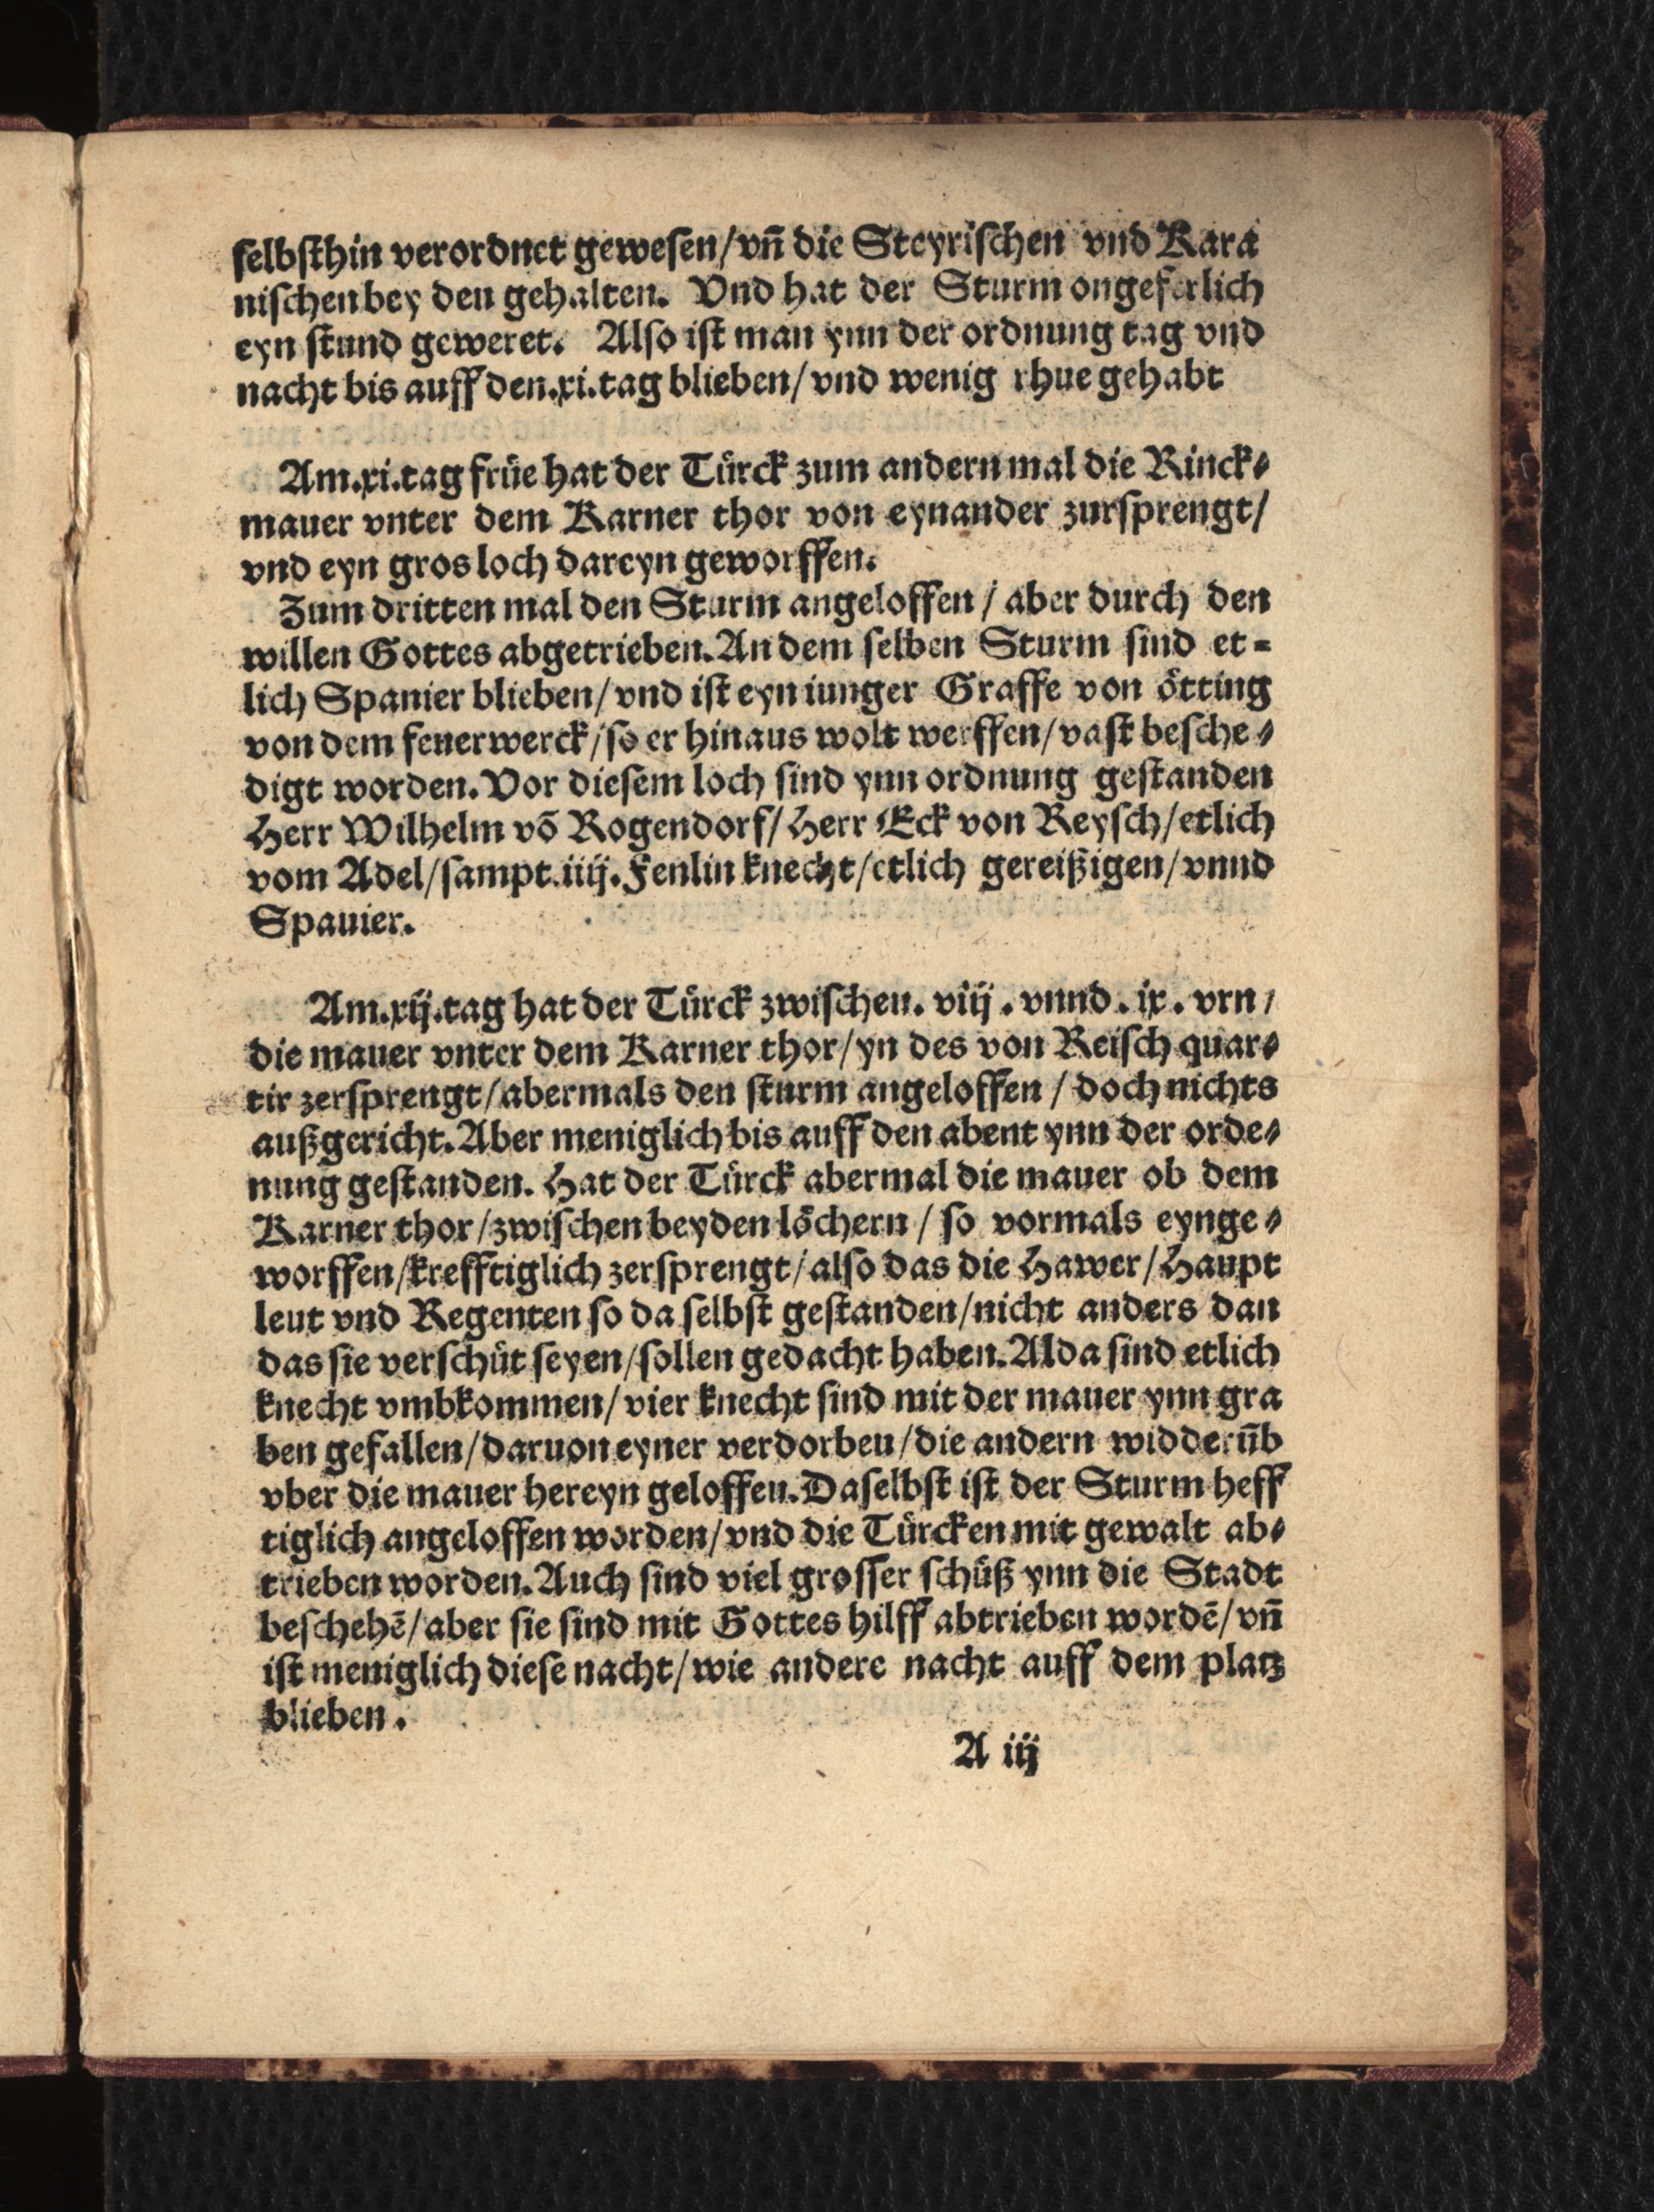 selbsthin verordnet gewesen/vñ die Steyrischen vnd Kara
nischen bey den gehalten. Vnd hat der Sturm ongeferlich
eyn stund geweret. Also ist man ynn der ordnung tag vnd
nacht bis auff den.xi.tag blieben/vnd wenig rhue gehabt
Am.xi.tag früe hat der Türck zum andern mal die Rinck⸗
mauer vnter dem Karner thor von eynander zursprengt/
vnd eyn gros loch dareyn geworffen.
Zum dritten mal den Sturm angeloffen/aber durch den
willen Gottes abgetrieben. An dem selben Sturm sind et⸗
lich Spanier blieben/vnd ist eyn iunger Graffe von ötting
von dem feuerwerck/so er hinaus wolt werffen/vast besche⸗
digt worden. Vor diesem loch sind ynn ordnung gestanden
Herr Wilhelm võ Rogendorf/Herr Eck von Reysch/etlich
vom Adel/sampt.iiij.Fenlin knecht/etlich gereißigen/vnnd
Spanier.
Am.xij.tag hat der Türck zwischen. viij. vnnd. ix. vrn/
die mauer vnter dem Karner thor/yn des von Reisch quar⸗
tir zersprengt/abermals den sturm angeloffen/doch nichts
außgericht. Aber meniglich bis auff den abent ynn der orde⸗
nung gestanden. Hat der Türck abermal die mauer ob dem
Karner thor/zwischen beyden löchern/so vormals eynge⸗
worffen/krefftiglich zersprengt/also das die Hawer/Haupt
leut vnd Regenten so da selbst gestanden/nicht anders dan
das sie verschüt seyen/sollen gedacht haben. Alda sind etlich
knecht vmbkommen/vier knecht sind mit der mauer ynn gra
ben gefallen/daruon eyner verdorben/die andern widderũb
vber die mauer hereyn geloffen. Daselbst ist der Sturm heff
tiglich angeloffen worden/vnd die Türcken mit gewalt ab⸗
trieben worden. Auch sind viel grosser schüß ynn die Stadt
beschehẽ/aber sie sind mit Gottes hilff abtrieben wordẽ/vñ
ist meniglich diese nacht/wie andere nacht auff dem platz
blieben.
A iij